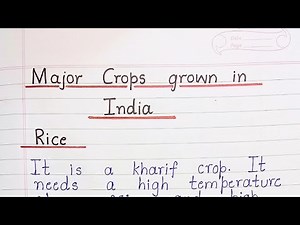 Major Crops grown in
India
Rice
It is a kharif crop. It
needs a high temperature